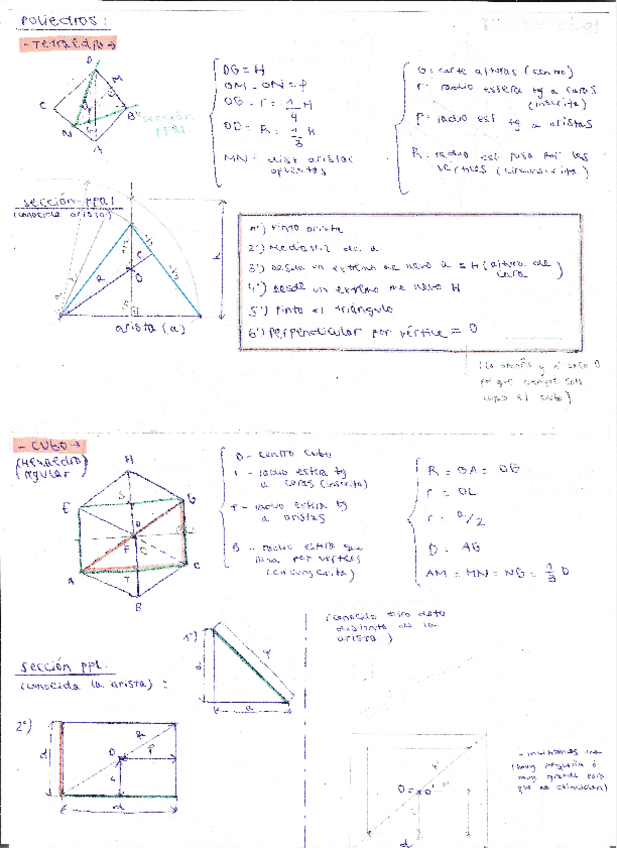 POLIEDROS:
- TETRAEDRO →
D
M
C
B
N
A
sección
PPAL
DG = H
OM - ON = ρ
OG - r = 1/4 H
OD = R = 1/3 H
MN = dist aristas
opuestas
O = corte alturas (centro)
r = radio esfera tg a caras
(inscrita)
ρ = radio esf tg a aristas
R = radio esf pasa por los
vértices (circunscrita)
sección PPAL
(conocida arista)
R
r
O
h
arista (a)
1º) Pinto arista
2º) Mediatriz de a
3º) Desde un extremo me llevo a = H (altura de
cara)
4º) Desde un extremo me llevo H
5º) Pinto el triángulo
6º) Perpendicular por vértice = O
porque siempre
- CUBO →
(Hexaedro
regular)
H
E
S
G
O
F
A
T
C
B
O - centro cubo
r - radio esfera tg
a caras (inscrita)
ρ - radio esfera tg
a aristas
R - radio esfera que
pasa por vértices
(circunscrita)
R = OA = OG
r = OL
r = a/2
D = AG
AM = MN = NG = 1/3 D
(conocido otro dato
distinto de la
arista)
sección ppl.
(conocida la arista) :
1º)
a
d
a
2º)
a
R
O
ρ
r
d
(muy pequeña o
muy grande para
que no coincidan)
O = O'
d